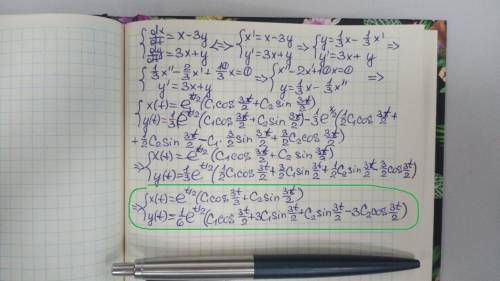 {dx/dt = x-3y, dy/dt = 3x+y <=> {x' = x-3y, y' = 3x+y => {y = 1/3x - 1/3x', y' = 3x+y =>
{1/3x'' - 2/3x' + 10/3x = 0, y' = 3x+y => {x' - 2x + 10x = 0, y = 1/3x - 1/3x'' =>
{x(t) = e^(t/2)(C₁cos 3t/2 + C₂sin 3t/2)
y(t) = 1/3(e^(t/2)(C₁cos 3t/2 + C₂sin 3t/2) - 1/3e^(x/2)(1/2C₁cos 3t/2 +
+ 1/2C₂sin 3t/2 - C₁·3/2sin 3t/2 + 3/2C₂cos 3t/2)
=> {x(t) = e^(t/2)(C₁cos 3t/2 + C₂sin 3t/2)
y(t) = 1/3e^(t/2)(1/2C₁cos 3t/2 + 3/2C₁sin 3t/2 + 1/2C₂sin 3t/2 - 3/2cos 3t/2)
=> {x(t) = e^(t/2)(C₁cos 3t/2 + C₂sin 3t/2)
y(t) = 1/6e^(t/2)(C₁cos 3t/2 + 3C₁sin 3t/2 + C₂sin 3t/2 - 3C₂cos 3t/2)